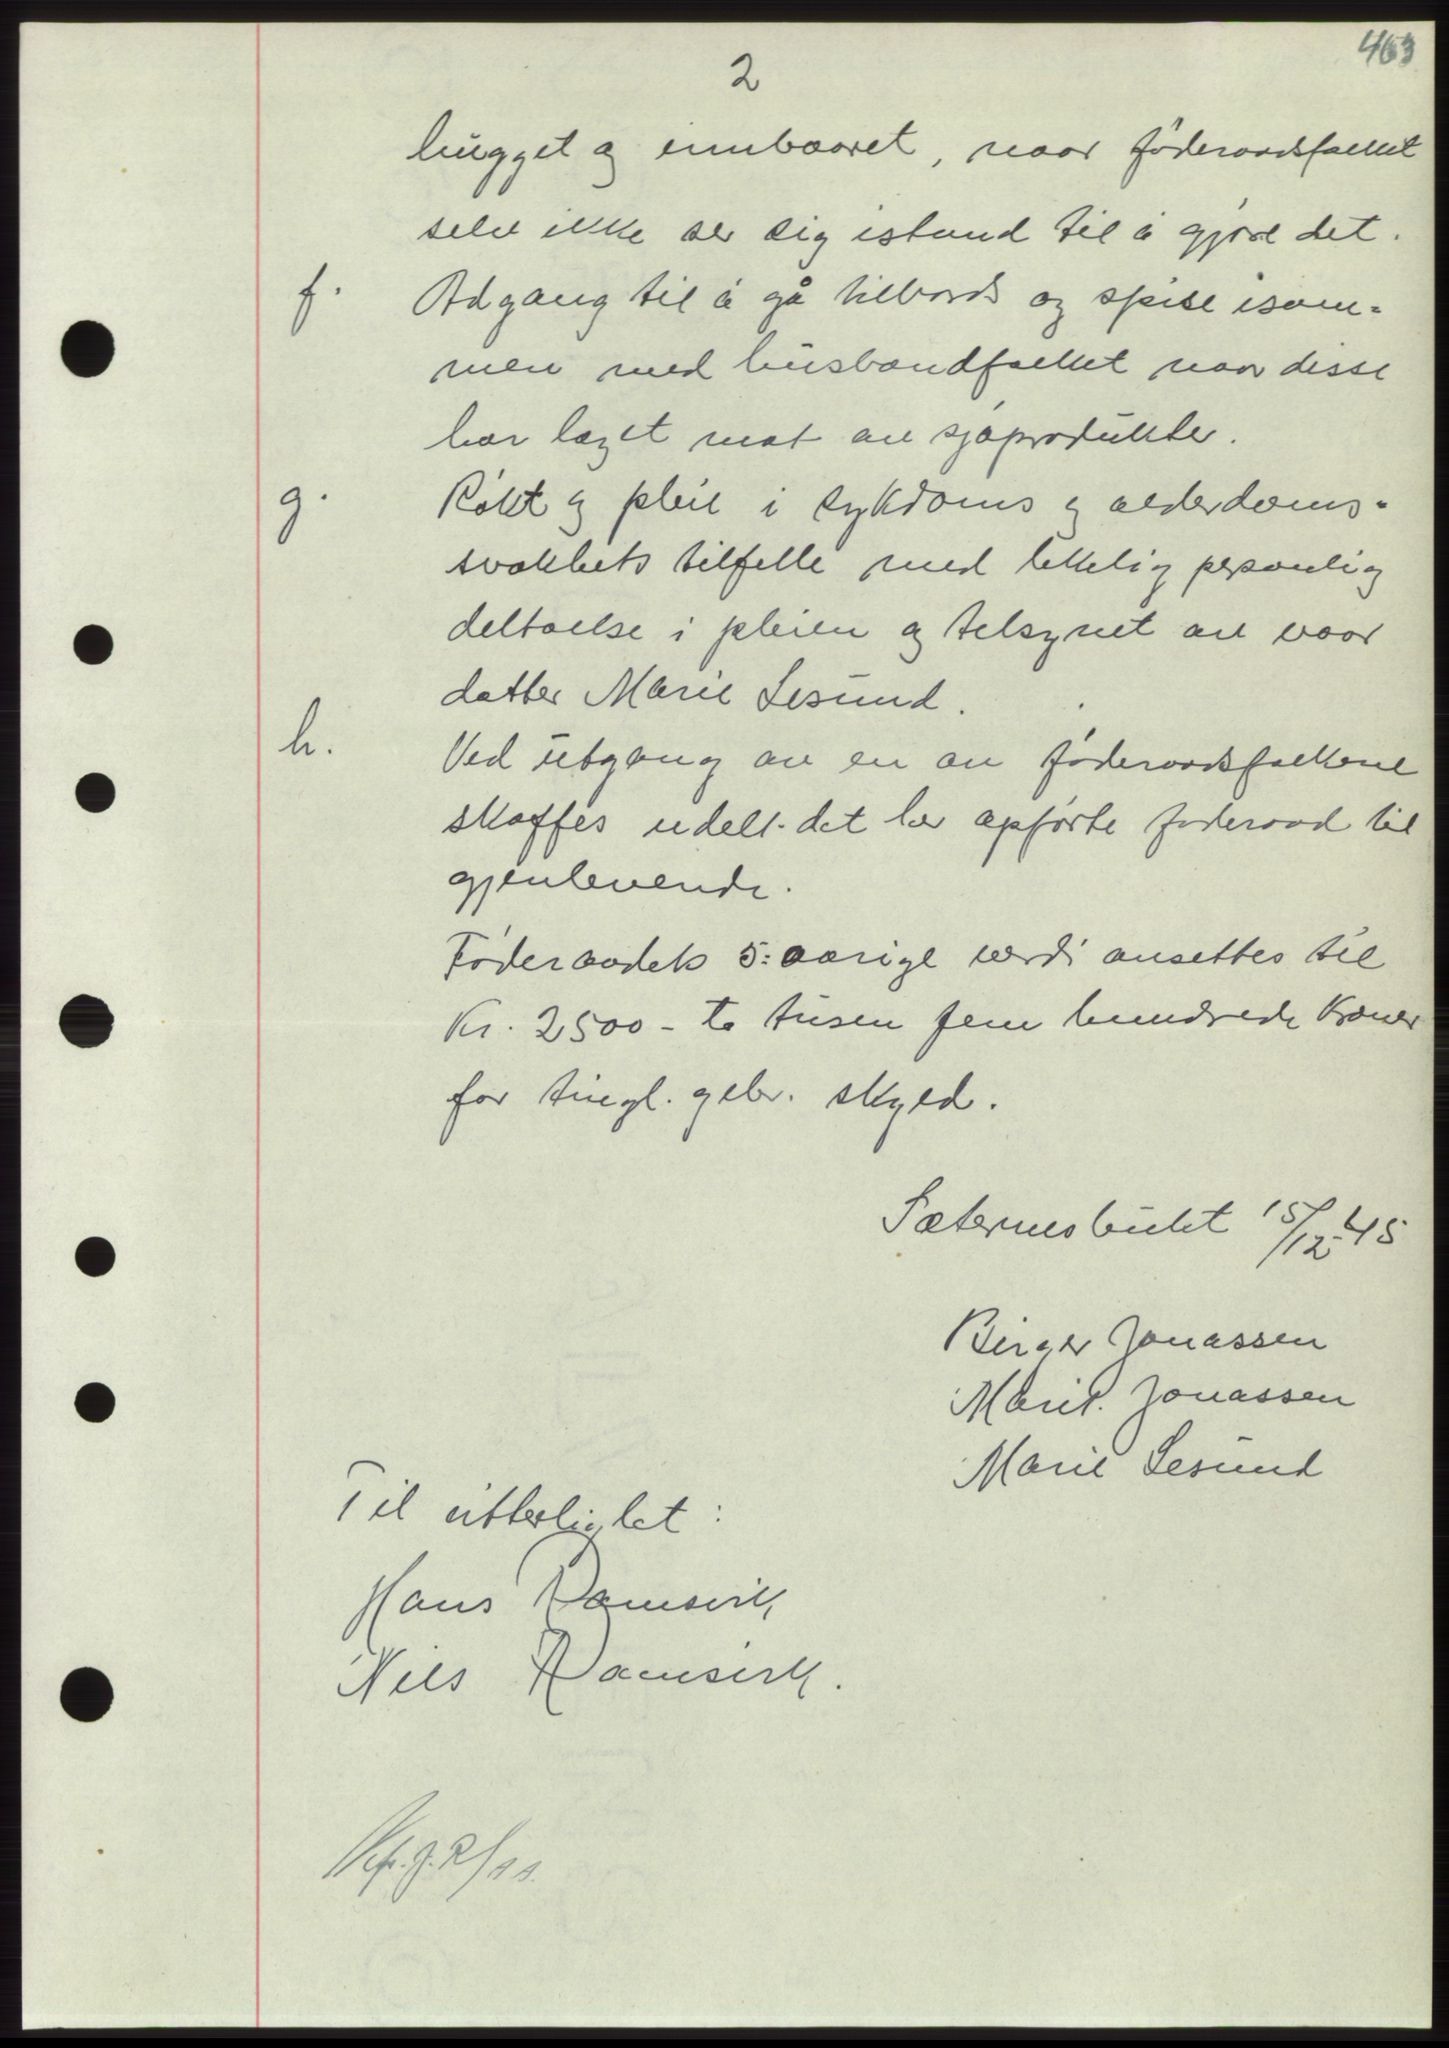 463
2
hugget og innbaaret, naar föderaadsfolket
selv ikke ser sig istand til å gjöre det.
f. Adgang til å gå tilbords og spise isam-
men med husbondfolket naar disse
har laget mat av sjöprodukter.
g. Rökt og pleie i sykdoms og alderdoms-
svakhets tilfelle med lettelig personlig
deltaelse i pleien og tilsynet av vaar
datter Marie Lesund.
h. Ved utgang av en av föderaadsfolkene
skaffes udelt det her opförte foderaad til
gjenlevende.
Föderaadets 5: aarige verdi ansettes til
Kr. 2500 - to tusen fem hundrede Kroner
for tingl. gebr. skyld.
Sæternesbukt 15/12-45
Birger Jonassen
Marit. Jonassen
Marie Lesund
Til vitterlighet:
Hans Ramsvik
Nils Ramsvik.